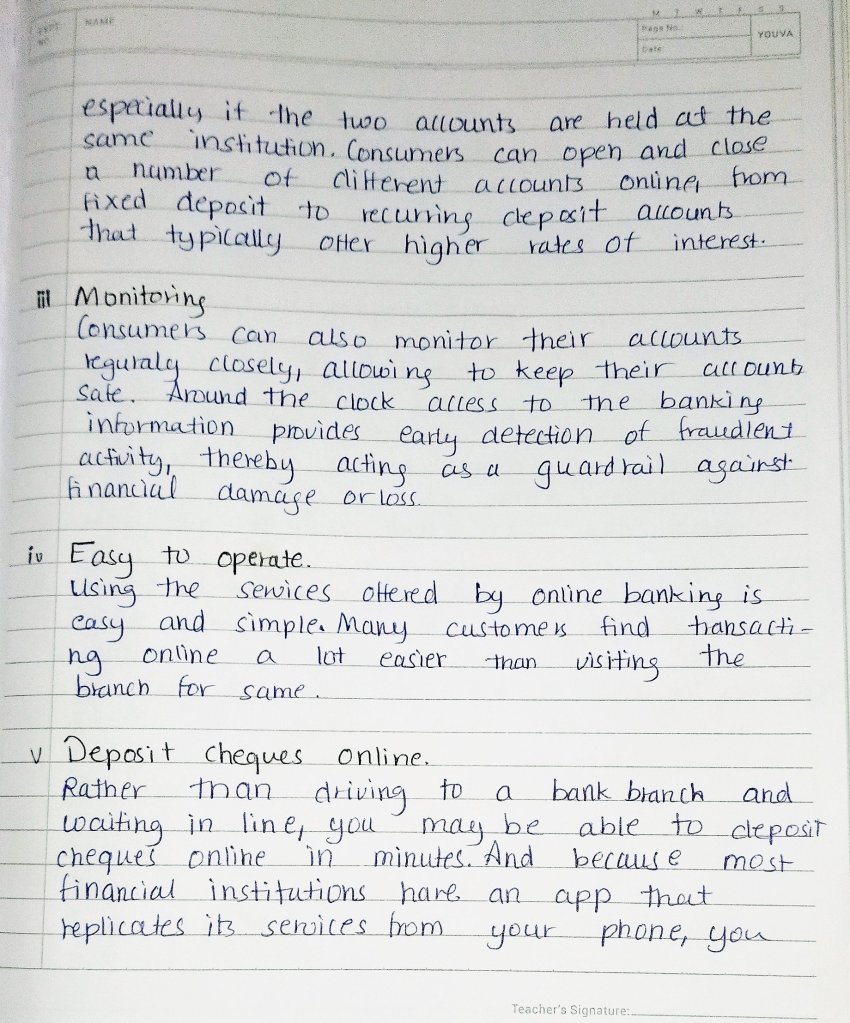 M T W T F S S
NAME
Page No.
YOUVA
Date
especially if the two accounts are held at the
same institution. Consumers can open and close
a number of different accounts online, from
fixed deposit to recurring deposit accounts
that typically offer higher rates of interest.
iii Monitoring
Consumers can also monitor their accounts
reguraly closely, allowing to keep their accounts
safe. Around the clock access to the banking
information provides early detection of fraudlent
activity, thereby acting as a guardrail against
financial damage or loss.
iv Easy to operate.
Using the services offered by online banking is
easy and simple. Many customers find transacti-
ng online a lot easier than visiting the
branch for same.
v Deposit cheques online.
Rather than driving to a bank branch and
waiting in line, you may be able to deposit
cheques online in minutes. And because most
financial institutions have an app that
replicates its services from your phone, you
Teacher's Signature: